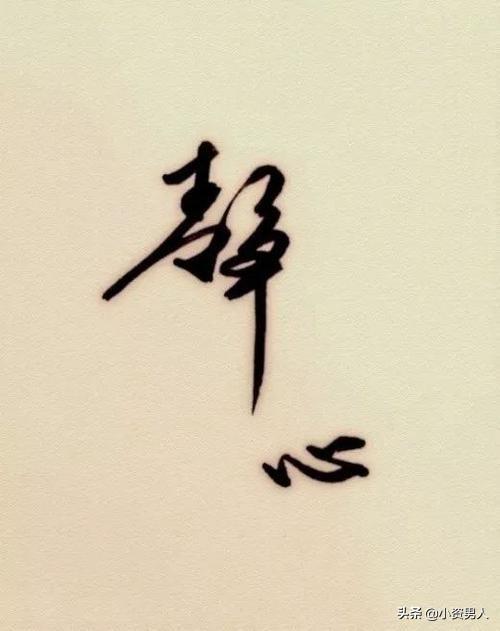 静
心
头条 @小资男人